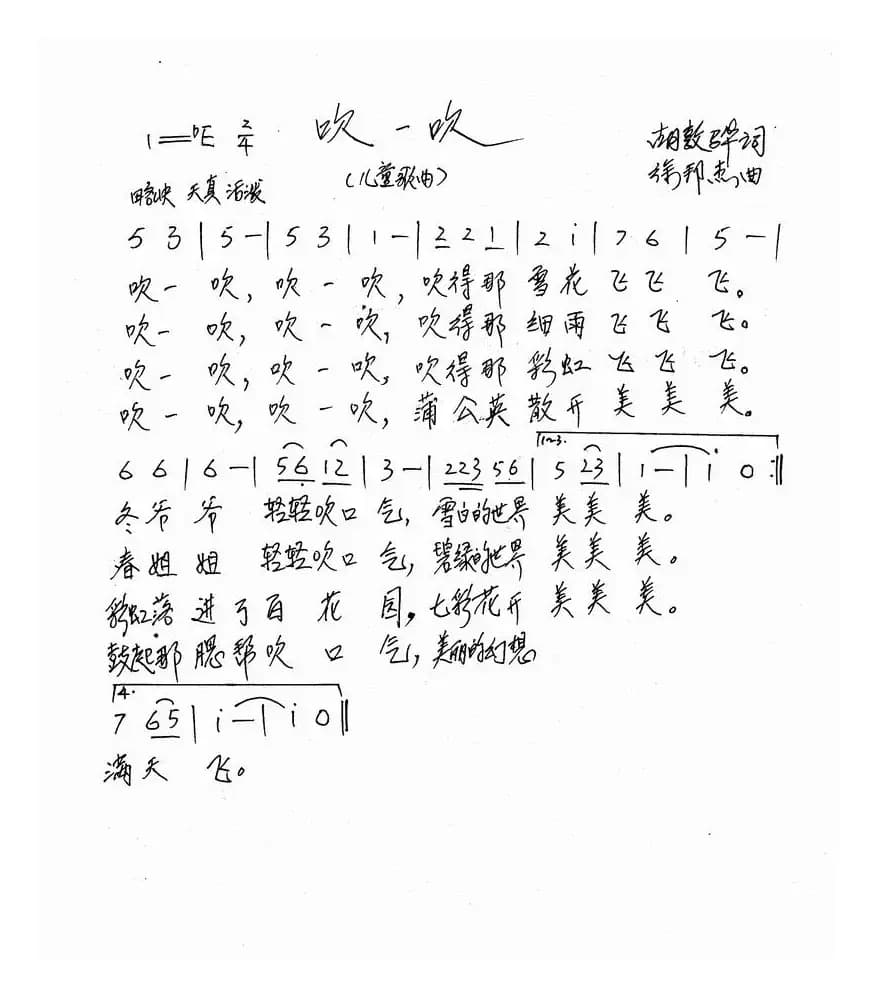 1=♭E 2/4 吹一吹
(儿童歌曲)
胡敦骅词
徐邦杰曲
略快 天真活泼
5 3 | 5 - | 5 3 | 1 - | 2 2 1 | 2 i | 7 6 | 5 - |
吹一 吹, 吹 一 吹, 吹得那 雪花 飞飞 飞。
吹一 吹, 吹 一 吹, 吹得那 细雨 飞飞 飞。
吹一 吹, 吹 一 吹, 吹得那 彩虹 飞飞 飞。
吹一 吹, 吹 一 吹, 蒲公英 散开 美美 美。
6 6 | 6 - | 56 12 | 3 - | 223 56 | 1~3. 5 23 | 1 - | i 0 :||
冬爷 爷 轻轻吹口 气, 雪白的世界 美美 美。
春姐 姐 轻轻吹口 气, 碧绿的世界 美美 美。
彩虹落 进了百 花 园, 七彩花开 美美 美。
鼓起那 腮帮吹 口 气, 美丽的幻想
4. 7 65 | i - | i 0 ||
满天 飞。